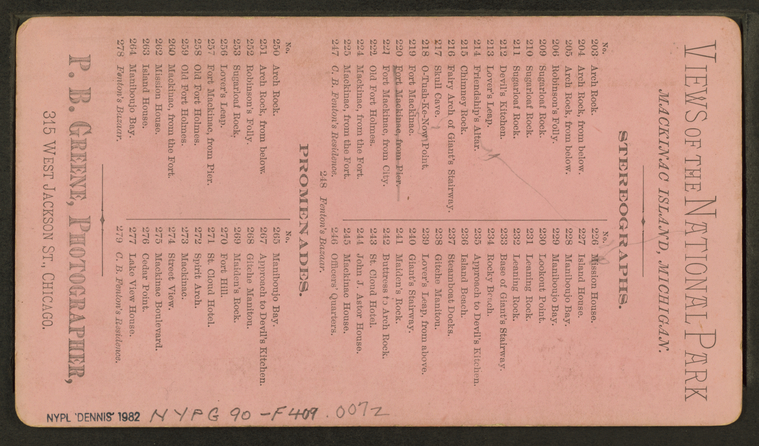 VIEWS OF THE NATIONAL PARK
MACKINAC ISLAND, MICHIGAN.
STEREOGRAPHS.
No.
203 Arch Rock.
204 Arch Rock, from below.
205 Arch Rock, from below.
206 Robinson's Folly.
209 Sugarloaf Rock.
210 Sugarloaf Rock.
211 Sugarloaf Rock.
212 Devil's Kitchen.
213 Lover's Leap.
214 Friendship's Altar.
215 Chimney Rock.
216 Fairy Arch of Giant's Stairway.
217 Skull Cave.
218 O-Tuah-Ke-Now Point.
219 Fort Mackinac.
220 Fort Mackinac, from Pier.
221 Fort Mackinac, from City.
222 Old Fort Holmes.
224 Mackinac, from the Fort.
225 Mackinac, from the Fort.
247 C. B. Fenton's Residence.
No.
226 Mission House.
227 Island House.
228 Maniboujo Bay.
229 Maniboujo Bay.
230 Lookout Point.
231 Leaning Rock.
232 Leaning Rock.
233 Base of Giant's Stairway.
234 Rocky Beach.
235 Approach to Devil's Kitchen.
236 Island Beach.
237 Steamboat Docks.
238 Gitche Manitou.
239 Lover's Leap, from above.
240 Giant's Stairway.
241 Maiden's Rock.
242 Buttress to Arch Rock.
243 St. Cloud Hotel.
244 John J. Astor House.
245 Mackinac House.
246 Officers' Quarters.
248 Fenton's Bazaar.
PROMENADES.
No.
250 Arch Rock.
251 Arch Rock, from below.
252 Robinson's Folly.
253 Sugarloaf Rock.
256 Lover's Leap.
257 Fort Mackinac, from Pier.
258 Old Fort Holmes.
259 Old Fort Holmes.
260 Mackinac, from the Fort.
262 Mission House.
263 Island House.
264 Maniboujo Bay.
278 Fenton's Bazaar.
No.
265 Maniboujo Bay.
267 Approach to Devil's Kitchen.
268 Gitche Manitou.
269 Maiden's Rock.
270 Fort Hill.
271 St. Cloud Hotel.
272 Spirit Arch.
273 Mackinac.
274 Street View.
275 Mackinac Boulevard.
276 Cedar Point.
277 Lake View House.
279 C. B. Fenton's Residence.
P. B. GREENE, PHOTOGRAPHER,
315 WEST JACKSON ST., CHICAGO.
NYPL 'DENNIS' 1982 NYPG 90-F409.0072